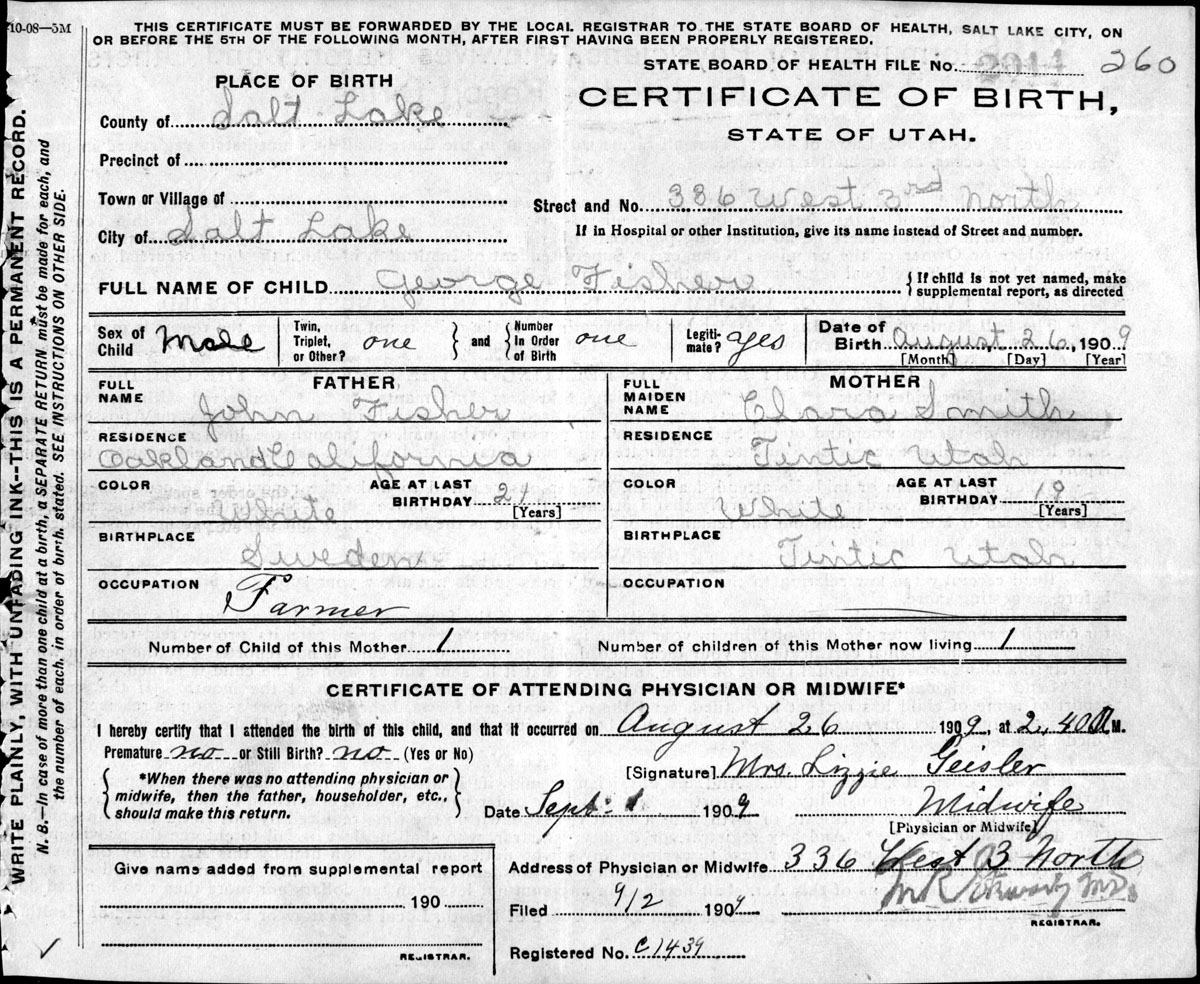 10-08—5M
THIS CERTIFICATE MUST BE FORWARDED BY THE LOCAL REGISTRAR TO THE STATE BOARD OF HEALTH, SALT LAKE CITY, ON
OR BEFORE THE 5TH OF THE FOLLOWING MONTH, AFTER FIRST HAVING BEEN PROPERLY REGISTERED.
STATE BOARD OF HEALTH FILE No. 2014 260
CERTIFICATE OF BIRTH,
STATE OF UTAH.
PLACE OF BIRTH
County of Salt Lake
Precinct of
Town or Village of
City of Salt Lake
Street and No. 336 West 3rd North
If in Hospital or other Institution, give its name instead of Street and number.
FULL NAME OF CHILD George Fisher { If child is not yet named, make
supplemental report, as directed
Sex of Child Male
Twin, Triplet, or Other? one } and { Number In Order of Birth one
Legiti-mate? yes
Date of Birth August 26, 1909
[Month] [Day] [Year]
FATHER
FULL NAME John Fisher
RESIDENCE
Oakland California
COLOR White
AGE AT LAST BIRTHDAY 21 [Years]
BIRTHPLACE
Sweden
OCCUPATION
Farmer
MOTHER
FULL MAIDEN NAME Clara Smith
RESIDENCE
Tintic Utah
COLOR White
AGE AT LAST BIRTHDAY 19 [Years]
BIRTHPLACE
Tintic Utah
OCCUPATION
Number of Child of this Mother 1 Number of children of this Mother now living 1
CERTIFICATE OF ATTENDING PHYSICIAN OR MIDWIFE*
I hereby certify that I attended the birth of this child, and that it occurred on August 26 1909, at 2.40 A M.
Premature no or Still Birth? no (Yes or No)
{ *When there was no attending physician or
midwife, then the father, householder, etc.,
should make this return. }
[Signature] Mrs. Lizzie Geisler
Date Sept. 1 1909 Midwife
[Physician or Midwife]
Address of Physician or Midwife 336 West 3 North
Give name added from supplemental report
190
REGISTRAR.
Filed 9/2 1909
REGISTRAR.
Registered No. C1439
WRITE PLAINLY, WITH UNFADING INK--THIS IS A PERMANENT RECORD.
N. B.—In case of more than one child at a birth, a SEPARATE RETURN must be made for each, and
the number of each, in order of birth, stated. SEE INSTRUCTIONS ON OTHER SIDE.